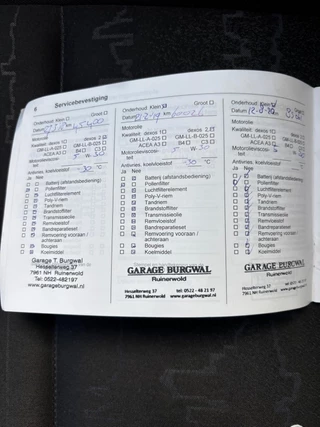 6 Servicebevestiging
Onderhoud: Klein Groot
Datum
Motorolie
Kwaliteit: dexos 1 dexos 2
GM-LL-A-025 GM-LL-B-025
ACEA A3 B4 C3
Motorolieviscositeit 5 W-30
Antivries, koelvloeistof -30 °C
Ja Nee
Batterij (afstandsbediening)
Pollenfilter
Luchtfilterelement
Poly-V-riem
Tandriem
Brandstoffilter
Transmissieolie
Remvloeistof
Bandreparatieset
Remvoering vooraan / achteraan
Bougies
Koelmiddel
Garage T. Burgwal
Hesselterweg 37
7961 NH Ruinerwold
Tel: 0522-482197
www.garageburgwal.nl
Onderhoud: Klein Groot
Datum
Motorolie
Kwaliteit: dexos 1 dexos 2
GM-LL-A-025 GM-LL-B-025
ACEA A3 B4 C3
Motorolieviscositeit 5 W-30
Antivries, koelvloeistof -30 °C
Ja Nee
Batterij (afstandsbediening)
Pollenfilter
Luchtfilterelement
Poly-V-riem
Tandriem
Brandstoffilter
Transmissieolie
Remvloeistof
Bandreparatieset
Remvoering vooraan / achteraan
Bougies
Koelmiddel
GARAGE BURGWAL
Ruinerwold
Hesselterweg 37 tel: 0522 - 48 21 97
7961 NH Ruinerwold www.garageburgwal.nl
Onderhoud: Klein
Datum
Motorolie
Kwaliteit: dexos 1
GM-LL-A-025
ACEA A3
Antivries, koelvloeistof
Ja Nee
Batterij (afstandsbediening)
Pollenfilter
Luchtfilterelement
Poly-V-riem
Tandriem
Brandstoffilter
Transmissieolie
Remvloeistof
Bandreparatieset
Remvoering vooraan / achteraan
Bougies
Koelmiddel
GARAGE BURGWAL
Ruinerwold
Hesselterweg 37
7961 NH Ruinerwold